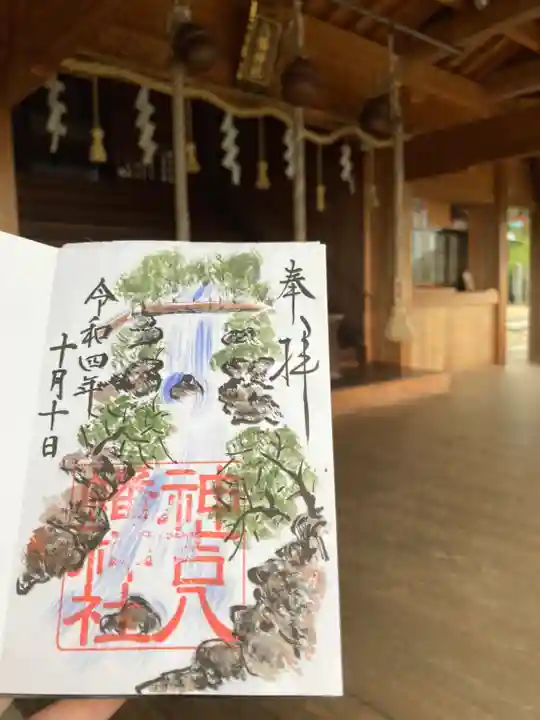 奉拝
神吉八
幡神社
令和四年
十月十日